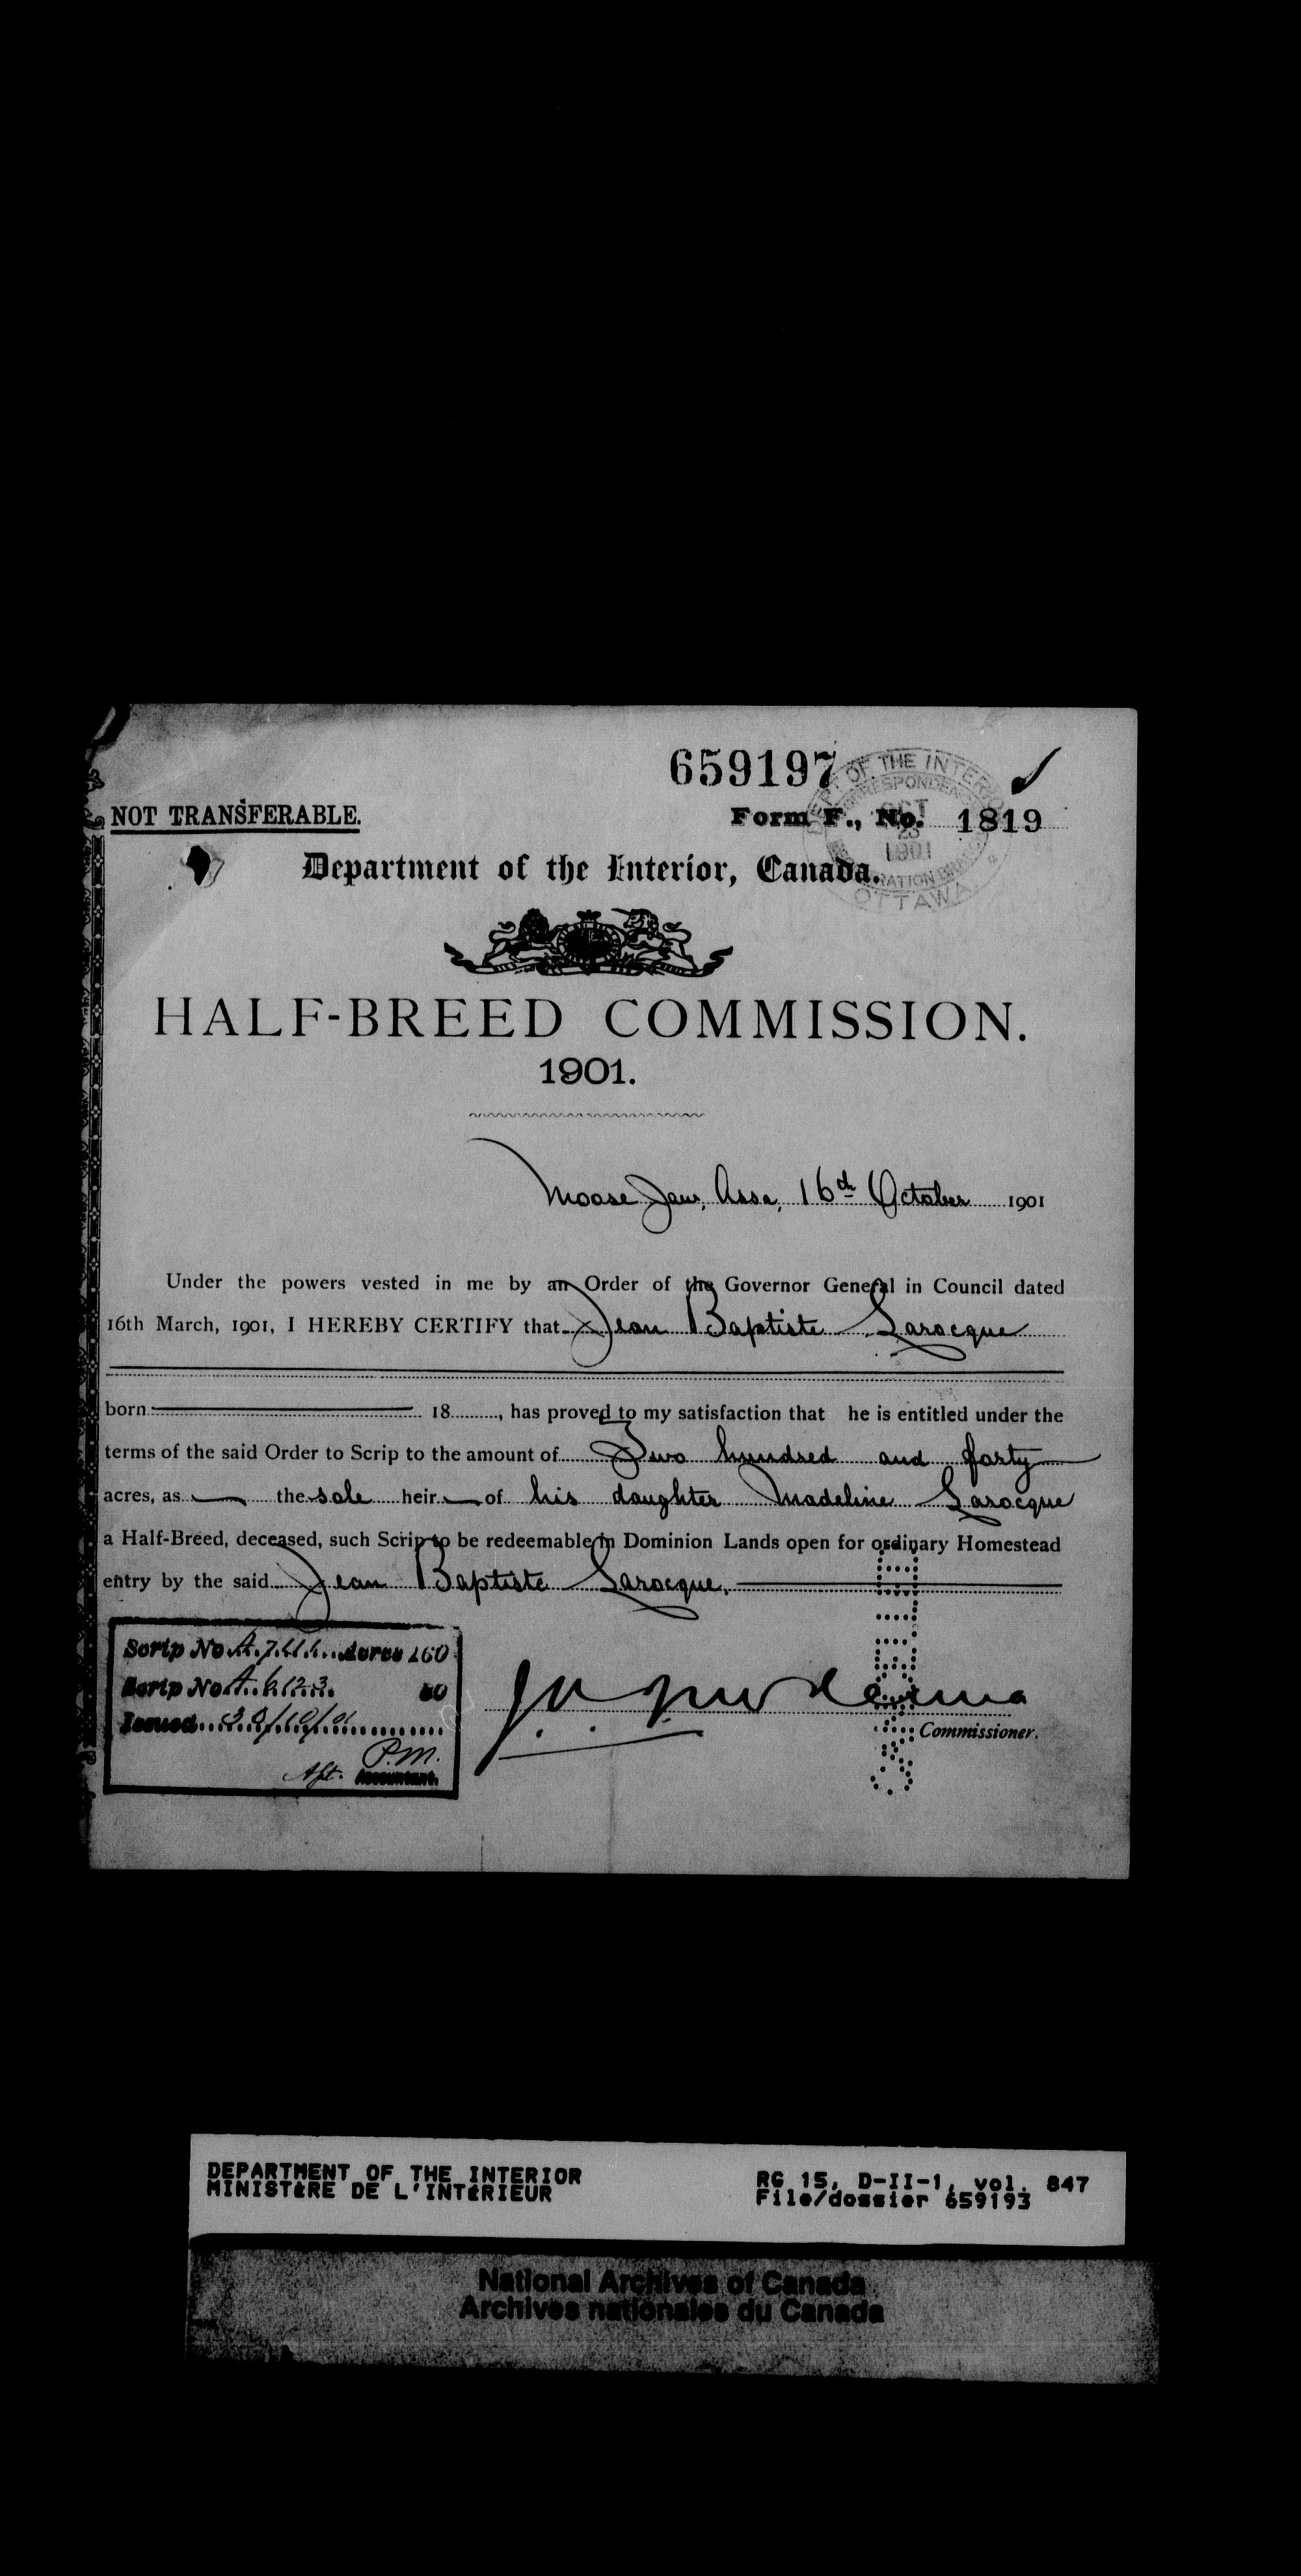 659197
NOT TRANSFERABLE.
Form F., No. 1819
DEPT OF THE INTERIOR
OCT
23
1901
OTTAWA
Department of the Interior, Canada.
HALF-BREED COMMISSION.
1901.
Moose Jaw, Assa, 16th October 1901
Under the powers vested in me by an Order of the Governor General in Council dated
16th March, 1901, I HEREBY CERTIFY that Jean Baptiste Larocque
born 18......, has proved to my satisfaction that he is entitled under the
terms of the said Order to Scrip to the amount of Two hundred and forty
acres, as the sole heir of his daughter Madeline Larocque
a Half-Breed, deceased, such Scrip to be redeemable in Dominion Lands open for ordinary Homestead
entry by the said Jean Baptiste Larocque.
Scrip No. Acres 160
Scrip No. A. 6123 80
Issued 30/10/01
P.M.
Accountant.
Commissioner.
DEPARTMENT OF THE INTERIOR
MINISTÈRE DE L'INTÉRIEUR
RG 15, D-II-1, vol. 847
File/dossier 659193
National Archives of Canada
Archives nationales du Canada